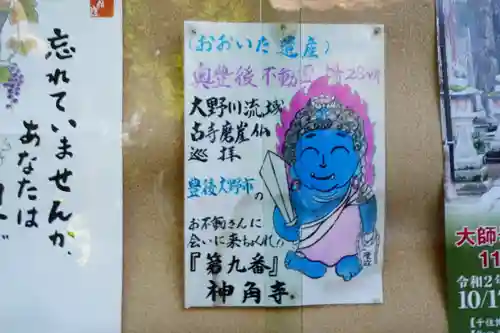 忘れていませんか、
あなたは
(おおいた遺産)
奥豊後不動
大野川流域
古寺磨崖仏
巡拝
豊後大野市の
お不動さんに
会いに来ちょくれ!!
『第九番』
神角寺
大師
11
令和2年
10/1
【千住